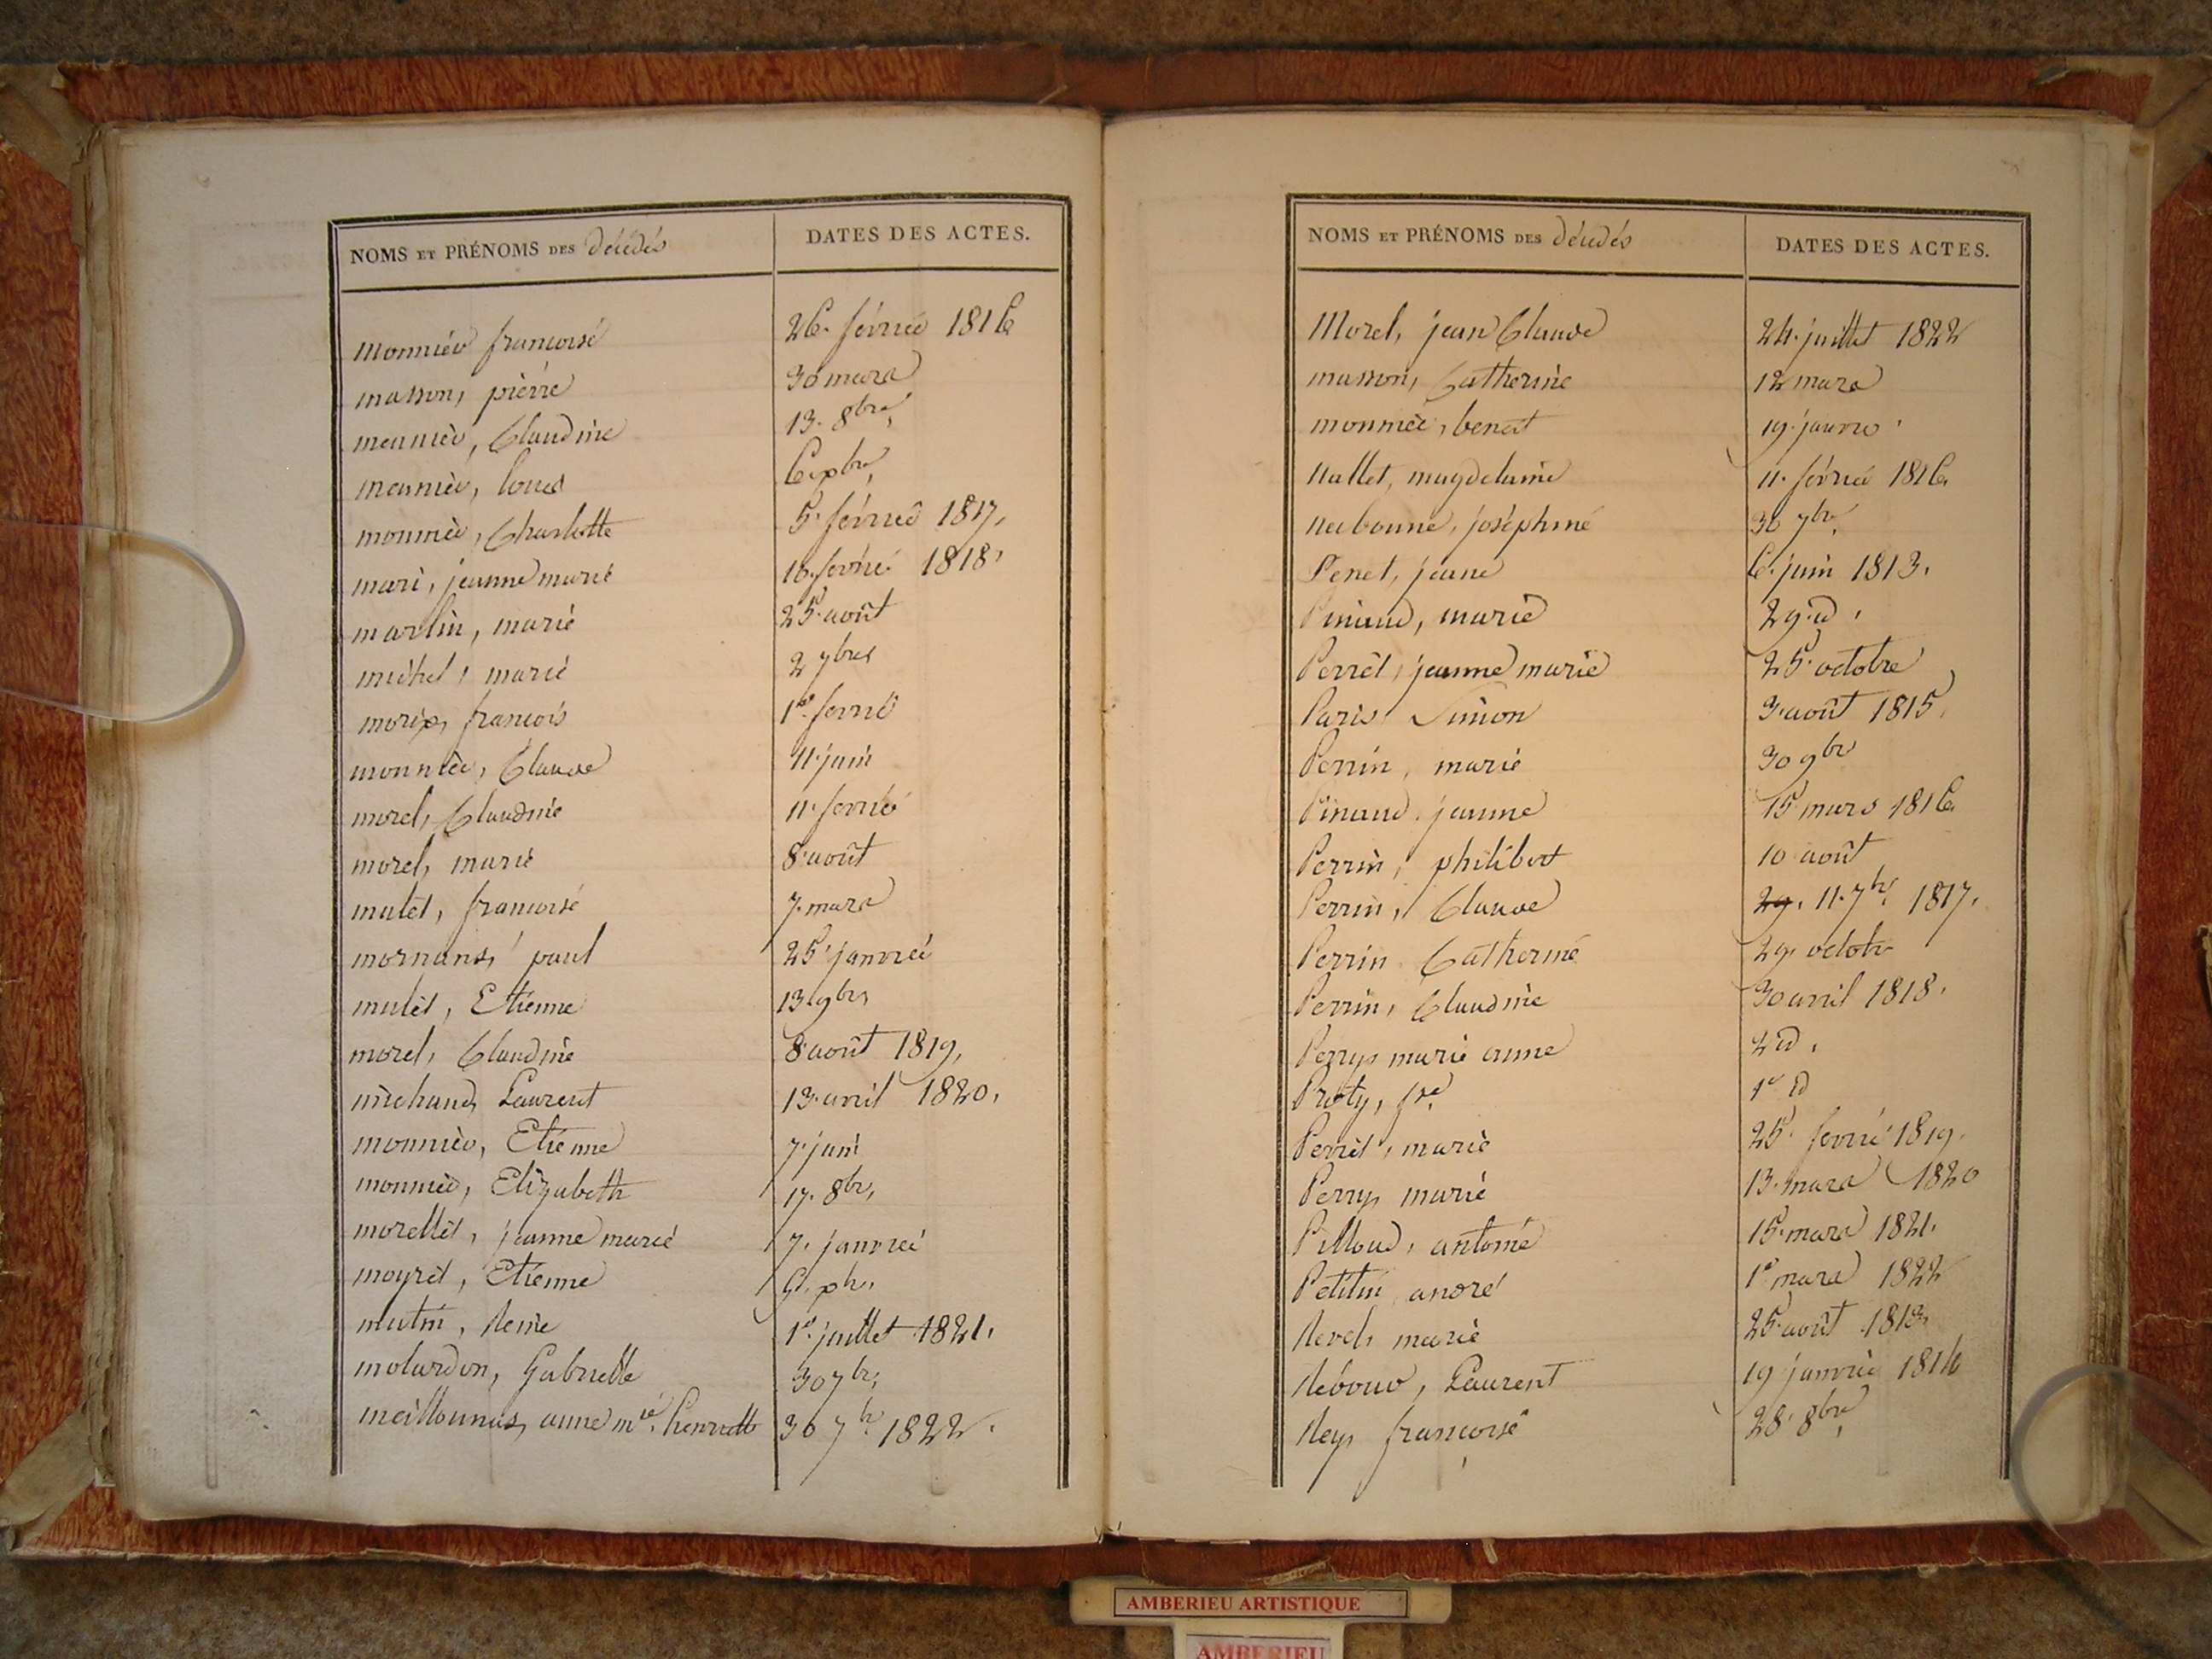 NOMS ET PRÉNOMS DES décédés DATES DES ACTES.
monnier francoise 26. février 1816
masson, pierre 30 mars
meunier, Claudine 13. 8bre,
meunier, louis 6 xbre,
monnier, Charlotte 5. février 1817,
mari, jeanne marie 10. février 1818,
martin, marie 25 août
michel, marie 2 7bres
morix, francois 1er. fevrie
monnier, Claude 11. juin
morel, Claudine 11. fevrié
morel, marie 8. août
mulet, francoise 7. mars
mornans, paul 25 janvier
mulet, Etienne 13. 9bre,
morel, Claudine 8 août 1819,
michaud, Laurent 13. avril 1820,
monnier, Etienne 7. juin
monnier, Elizabeth 17. 8bre,
morellet, jeanne marie 7. janvier
moyret, Etienne xbre,
mutin, Reine 1er. juillet 1821,
molardon, Gabrielle 30 7bre,
meillonnas, anne mie. henriette 30 7bre 1822.
NOMS ET PRÉNOMS DES décédés DATES DES ACTES.
Morel, jean Claude 24. juillet 1822
masson, Catherine 12 mars
monnier, benoit 19. janvier
Nallet, magdelaine 11. février 1816
Narbonne, joséphine 30 7bre,
Penet, jeane 6. juin 1813.
Pinaud, marie 29. id.
Perret, jeanne marie 25. octobre
Paris Simon 3. août 1815,
Perrin, marie 30 9bre
Pinaud, jeanne 15 mars 1816
Perrin, philibert 10 août
Perrin, Claude 29. 11. 7bre. 1817.
Perrin Catherine 29. octobre
Perrin, Claudine 30 avril 1818.
Perry, marie anne 2 id.
Proty, fse. 1er id
Perret, marie 25. fevrié 1819.
Perry, marie 13. mars 1820
Pilloud, antoine 15. mars 1821.
Petitin, andré 1er mars 1822
Revel, marie 25. août 1813,
Rebour, Laurent 19 janvier 1816
Rey, francoise 28. 8bre,
AMBERIEU ARTISTIQUE
AMBERIEU